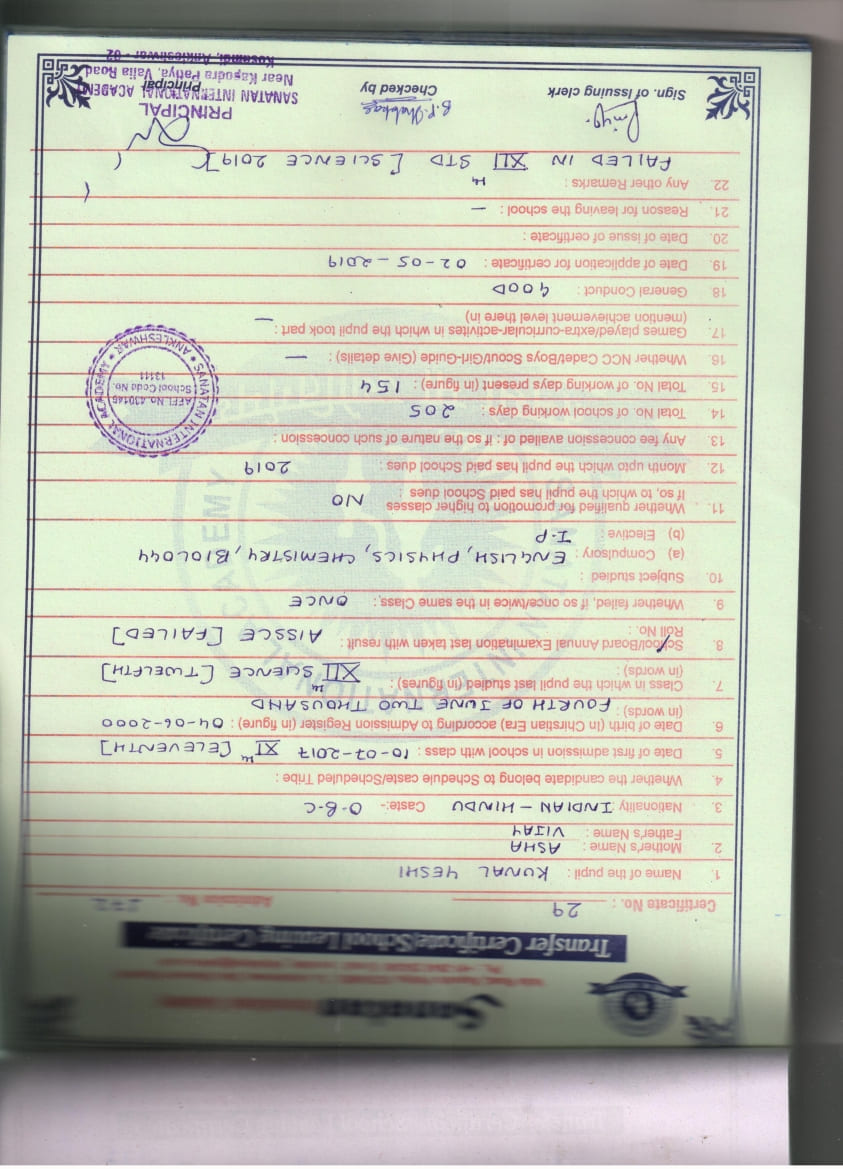 Sanatan
Transfer Certificate/School Leaving Certificate
Certificate No. : 29 Admission No.
1. Name of the pupil : KUNAL YESHI
2. Mother's Name : ASHA
Father's Name : VIJAY
3. Nationality INDIAN - HINDU Caste:- O.B.C
4. Whether the candidate belong to Schedule caste/Scheduled Tribe :
5. Date of first admission in school with class : 10-07-2017 XI th [ELEVENTH]
6. Date of birth (In Chirstian Era) according to Admission Register (in figure) : 04-06-2000
(in words) : FOURTH OF JUNE TWO THOUSAND
7. Class in which the pupil last studied (in figures) : XII th SCIENCE [TWELFTH]
(in words) :
8. School/Board Annual Examination last taken with result : AISSCE [FAILED]
Roll No. :
9. Whether failed, if so once/twice in the same Class, : ONCE
10. Subject studied :
(a) Compulsory : ENGLISH, PHYSICS, CHEMISTRY, BIOLOGY
(b) Elective : I.P
11. Whether qualified for promotion to higher classes NO
If so, to which the pupil has paid School dues :
12. Month upto which the pupil has paid School dues : 2019
13. Any fee concession availed of : if so the nature of such concession :
14. Total No. of school working days : 205
15. Total No. of working days present (in figure) : 154
16. Whether NCC Cadet/Boys Scout/Girl-Guide (Give details) : —
17. Games played/extra-curricular-activites in which the pupil took part : —
(mention achievement level there in)
18. General Conduct : GOOD
19. Date of application for certificate : 02-05-2019
20. Date of issue of certificate :
21. Reason for leaving the school : —
22. Any other Remarks :
FAILED IN XII th STD [SCIENCE 2019]
SANATAN INTERNATIONAL ACADEMY * ANKLESHWAR *
AFFI. No. 430146
School Code No.
13111
Sign. of issuing clerk
Checked by
Principal
PRINCIPAL
SANATAN INTERNATIONAL ACADEMY
Near Kapodra Patiya, Valia Road
Kosamdi, Ankleshwar - 02
SANATAN INTERNATIONAL ACADEMY